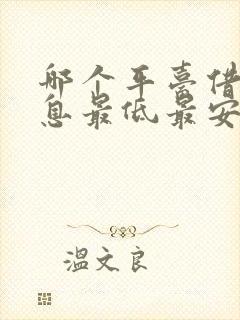 那个平台借
息最低最安
温文良